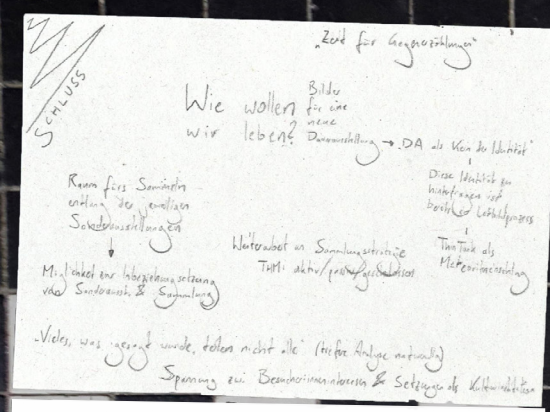 SCHLUSS
"Zeit für Gegenerzählungen"
Wie wollen
wir leben?
Bilder
für eine
neue
Dauerausstellung → "DA als Kern der Identität"
Diese Identität zu
hinterfragen ist
bereits Leitbildprozess
ThinkTank als
Meteoriteneinschlag
Raum fürs Sammeln
entlang der jeweiligen
Sonderausstellungen
Möglichkeit zur Inbeziehungsetzung
von Sonderausst. & Sammlung
Weiterarbeit an Sammlungsstrategie
THMi aktiv/passiv/geschlossen
"Vieles, was gesagt wurde, teilen nicht alle" (tiefere Analyse notwendig)
Spannung zw. Besucherinneninteressen & Setzungen als